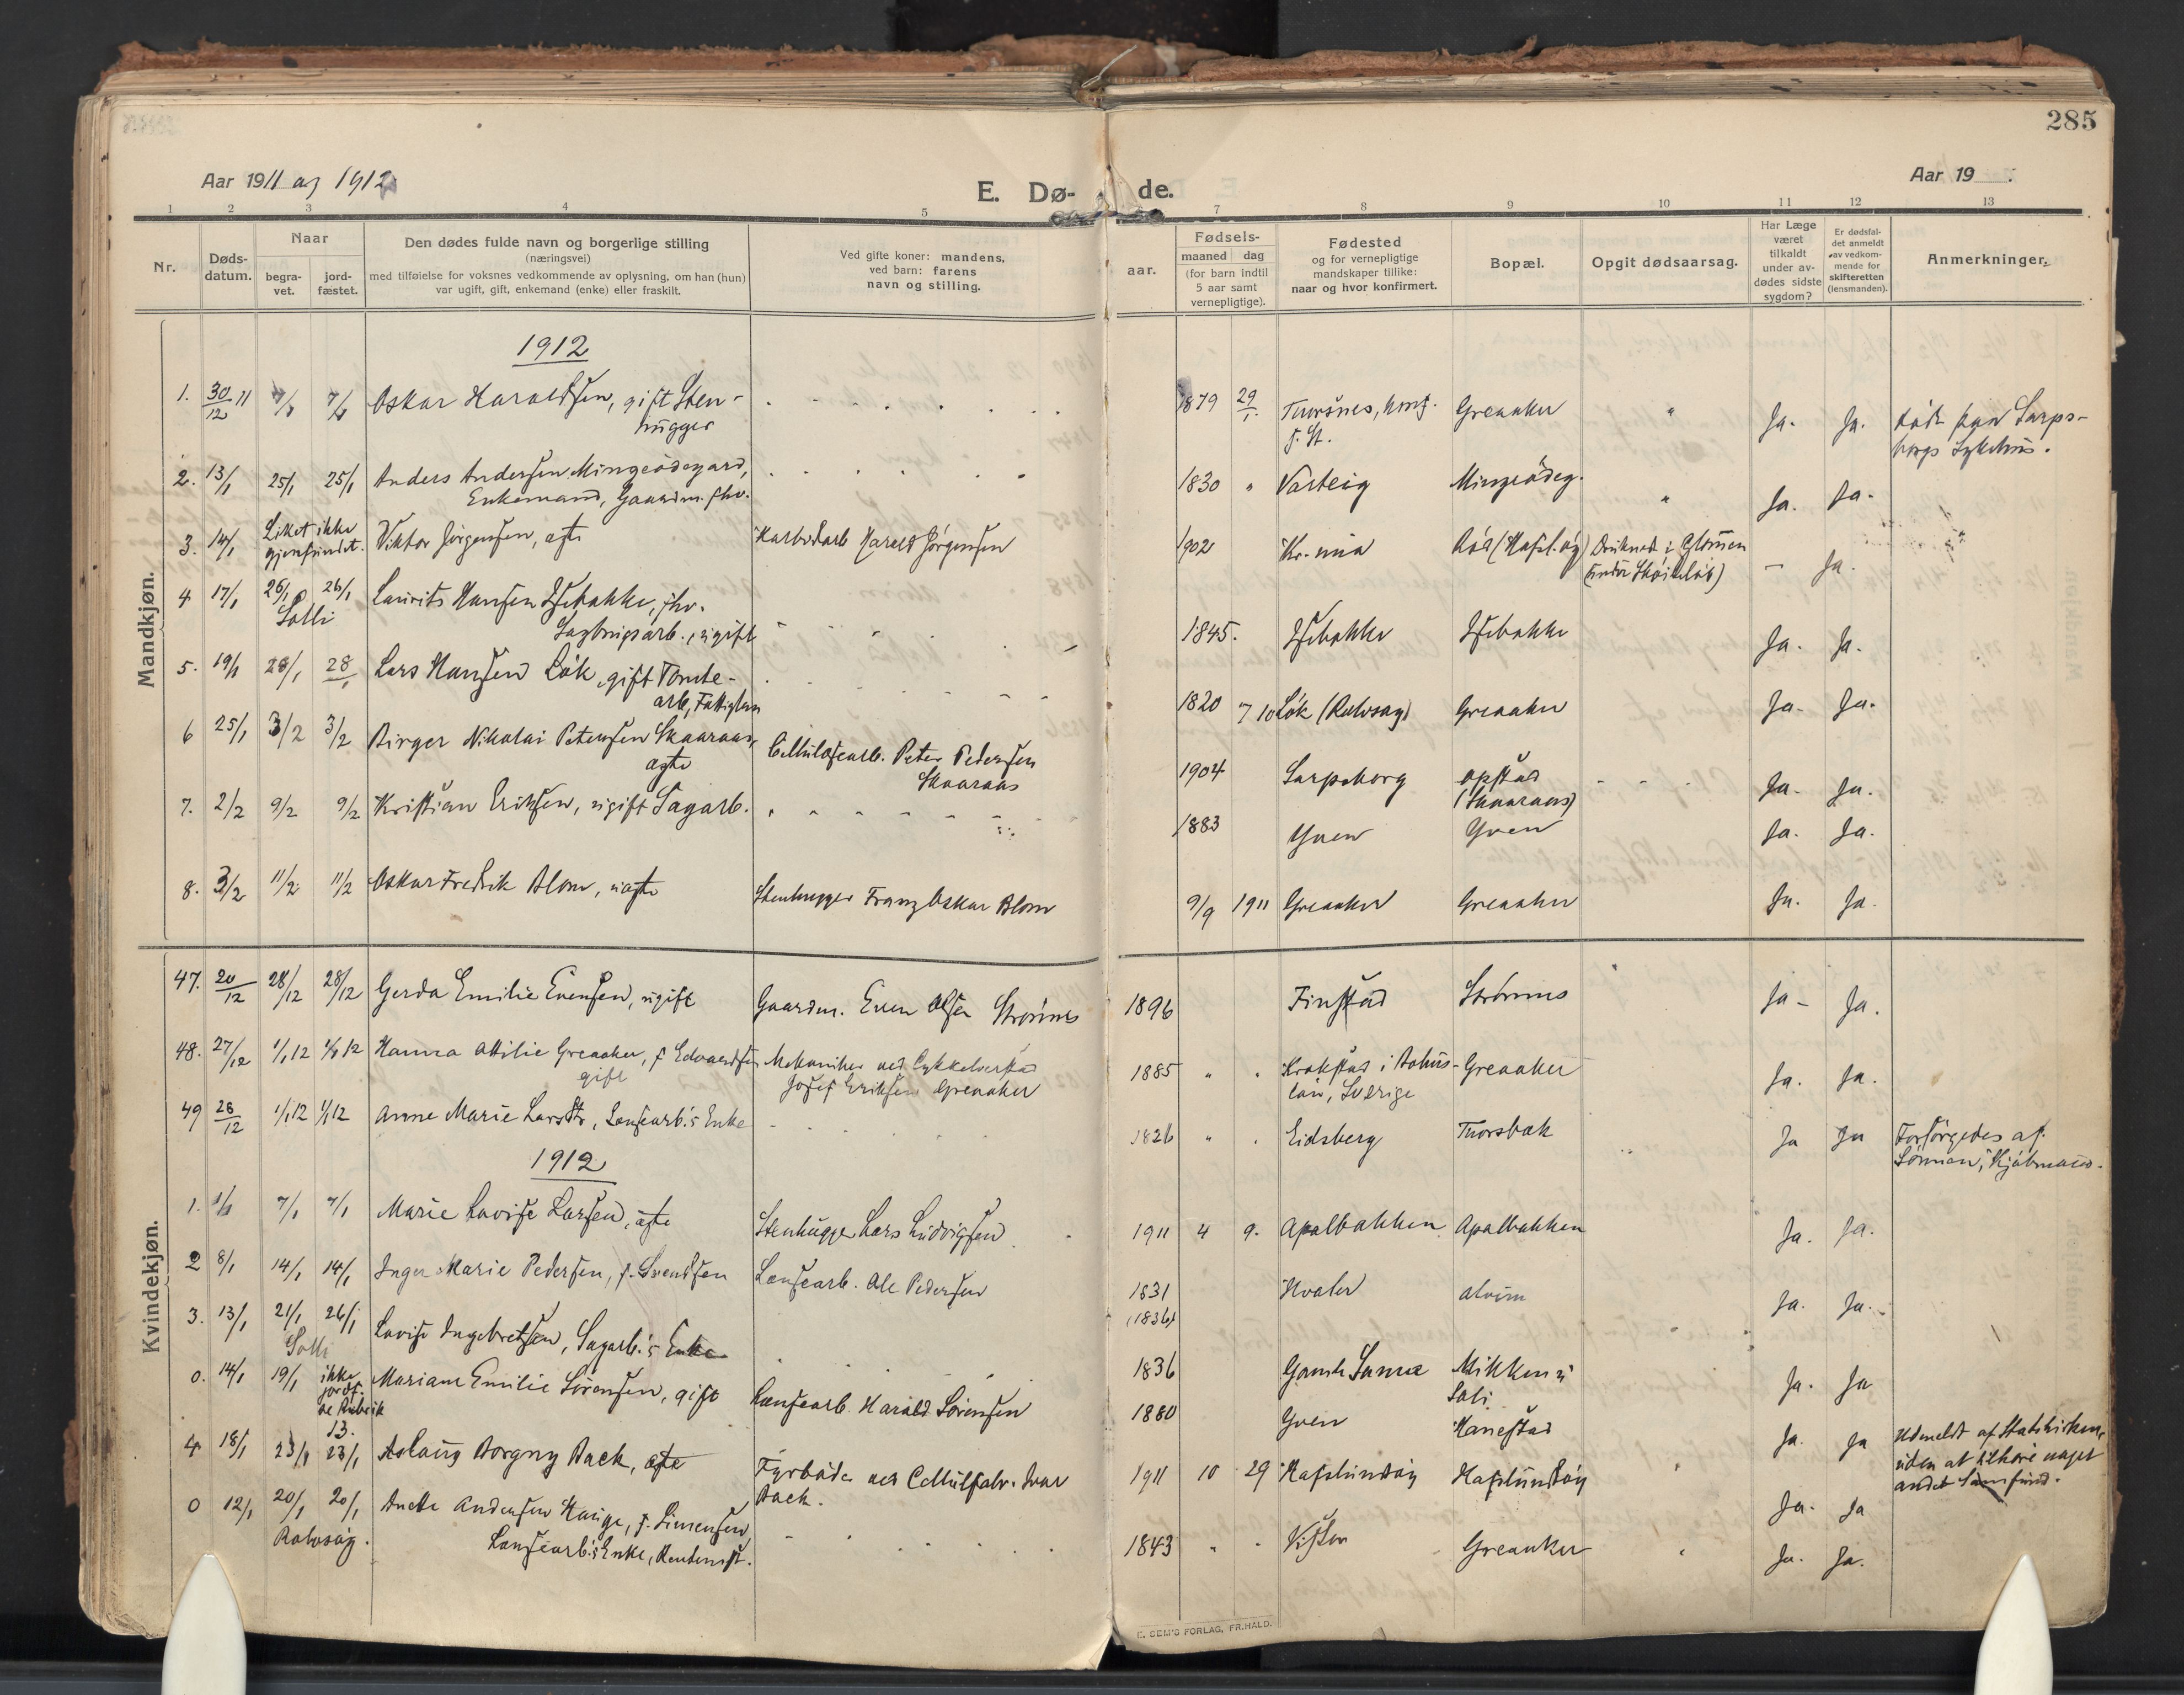 285
Aar 1911 og 1912
E. Dø- de.
Aar 19 .
1 2 3 4 5 7 8 9 10 11 12 13
Nr.
Døds-
datum.
Naar
begra-
vet.
jord-
fæstet.
Den dødes fulde navn og borgerlige stilling
(næringsvei)
med tilføielse for voksnes vedkommende av oplysning, om han (hun)
var ugift, gift, enkemand (enke) eller fraskilt.
Ved gifte koner: mandens,
ved barn: farens
navn og stilling.
Fødsels-
aar. maaned dag
(for barn indtil
5 aar samt
vernepligtige).
Fødested
og for vernepligtige
mandskaper tillike:
naar og hvor konfirmert.
Bopæl.
Opgit dødsaarsag.
Har Læge
været
tilkaldt
under av-
dødes sidste
sygdom?
Er dødsfal-
det anmeldt
av vedkom-
mende for
skifteretten
(lensmanden).
Anmerkninger.
Mandkjøn.
1912
1. 30/12 11 7/1 7/1 Oskar Haraldsen, gift Sten-
hugger
1879 29/1. Tunrsnes, konf.
f. St.
Greaaker " Ja. Ja. Död paa Sarps-
borgs Sykehus.
2. 13/1 25/1 25/1 Anders Andersen Mingeödegard,
Enkemand, Gaardm. fhv.
1830 " Varteig Mingeödeg. " Ja. Ja.
3. 14/1 Liket ikke
gjenfundet.
Viktor Jörgensen, ægte Karbidarb Harald Jörgensen
1902 Kr.nia Röd (Hafsl.öy) Druknet i Glommen
(under Skøiteløb)
– Ja.
4 17/1 26/1 26/1
Solli
Laurits Hansen Isebakke, fhv.
Sagbrugsarb., ugift
1845. Isebakke Isebakke Ja. Ja.
5. 19/1 28/1 28/1 Lars Hansen Lök, gift Tomte-
arb, Fattiglem
1820 7 10 Lök (Rolvsøy) Greaaker Ja. Ja.
6 25/1 3/2 3/2 Birger Nikolai Petersen Skaaraas,
ægte
Cellulosearb. Peter Pedersen
Skaaraas
1904 Sarpsborg Opstad
(Skaaraas)
Ja. Ja.
7. 2/2 9/2 9/2 Kristian Eriksen, ugift Sagarb.
1883 Yven Yven Ja. Ja.
8. 3/2 11/2 11/2 Oskar Fredrik Blom, uægte Stenhugger Franz Oskar Blom
9/9 1911 Greaaker Greaaker Ja. Ja.
Kvindekjøn.
47. 20/12 28/12 28/12 Gerda Emilie Evensen, ugift Gaardm. Even Olsen Strömnes
1896 Finstad Strömnes Ja – Ja.
48. 27/12 1/1 12 1/1 12 Hanna Otilie Greaaker, f Edvardsen
gift
Mekaniker ved Cykkelverksted
Josef Eriksen Greaaker
1885 " Krokstad i Bohus-
län, Sverige
Greaaker Ja. Ja.
49 28/12 1/1 12 1/1 12 Anne Marie Larsdtr, Lonsearb.'s Enke
1826 " Eidsberg Tuorsbæk Ja Ja Forsörgedes af
Sönnen, Kjöbmand.
1912
1. 1/1 7/1 7/1 Marie Lovise Larsen, ægte Stenhugger Lars Ludvigsen
1911 4 9. Apalbakken Apalbakken Ja. Ja.
2 8/1 14/1 14/1 Inger Marie Pedersen, f. Svendsen Lensearb. Ole Pedersen
1831
(1836)
Hvaler Alvim Ja. Ja.
3. 13/1 21/1 26/1
Solli
Lovise Ingebretsen, Sagarb.'s Enke
1836 Gamle Sanne Mikken i
Soli
Ja. Ja
0. 14/1 19/1 ikke
jordf.
se Rubrik
13.
Mariane Emilie Sörensen, gift Lensearb. Harald Sörensen
1880 Yven Hanestad Ja. Ja Udmeldt af Statskirken,
uden at tilhöre noget
andet Samfund.
4 18/1 23/1 23/1 Aslaug Borgny Back, ægte Fyrböder ved Cellulfabr. Ivar
Back.
1911 10 29 Hafslundöy Hafslundöy Ja. Ja
0 12/1 20/1 20/1
Rolvsöy.
Anette Andersen Hauge, f. Simensen,
Lensearb.'s Enke,
1843 " Visten Greaaker Ja. Ja.
E. SEM'S FORLAG, FR.HALD.